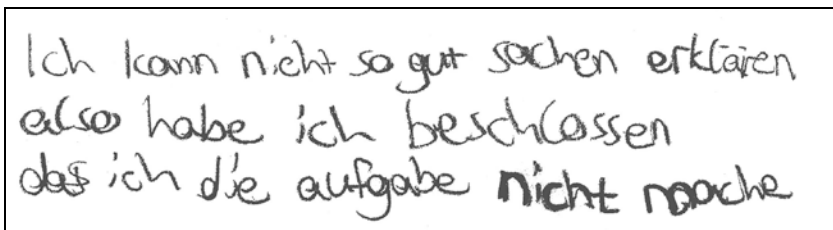 Ich kann nicht so gut sachen erklären
also habe ich beschlossen
das ich die aufgabe nicht mache